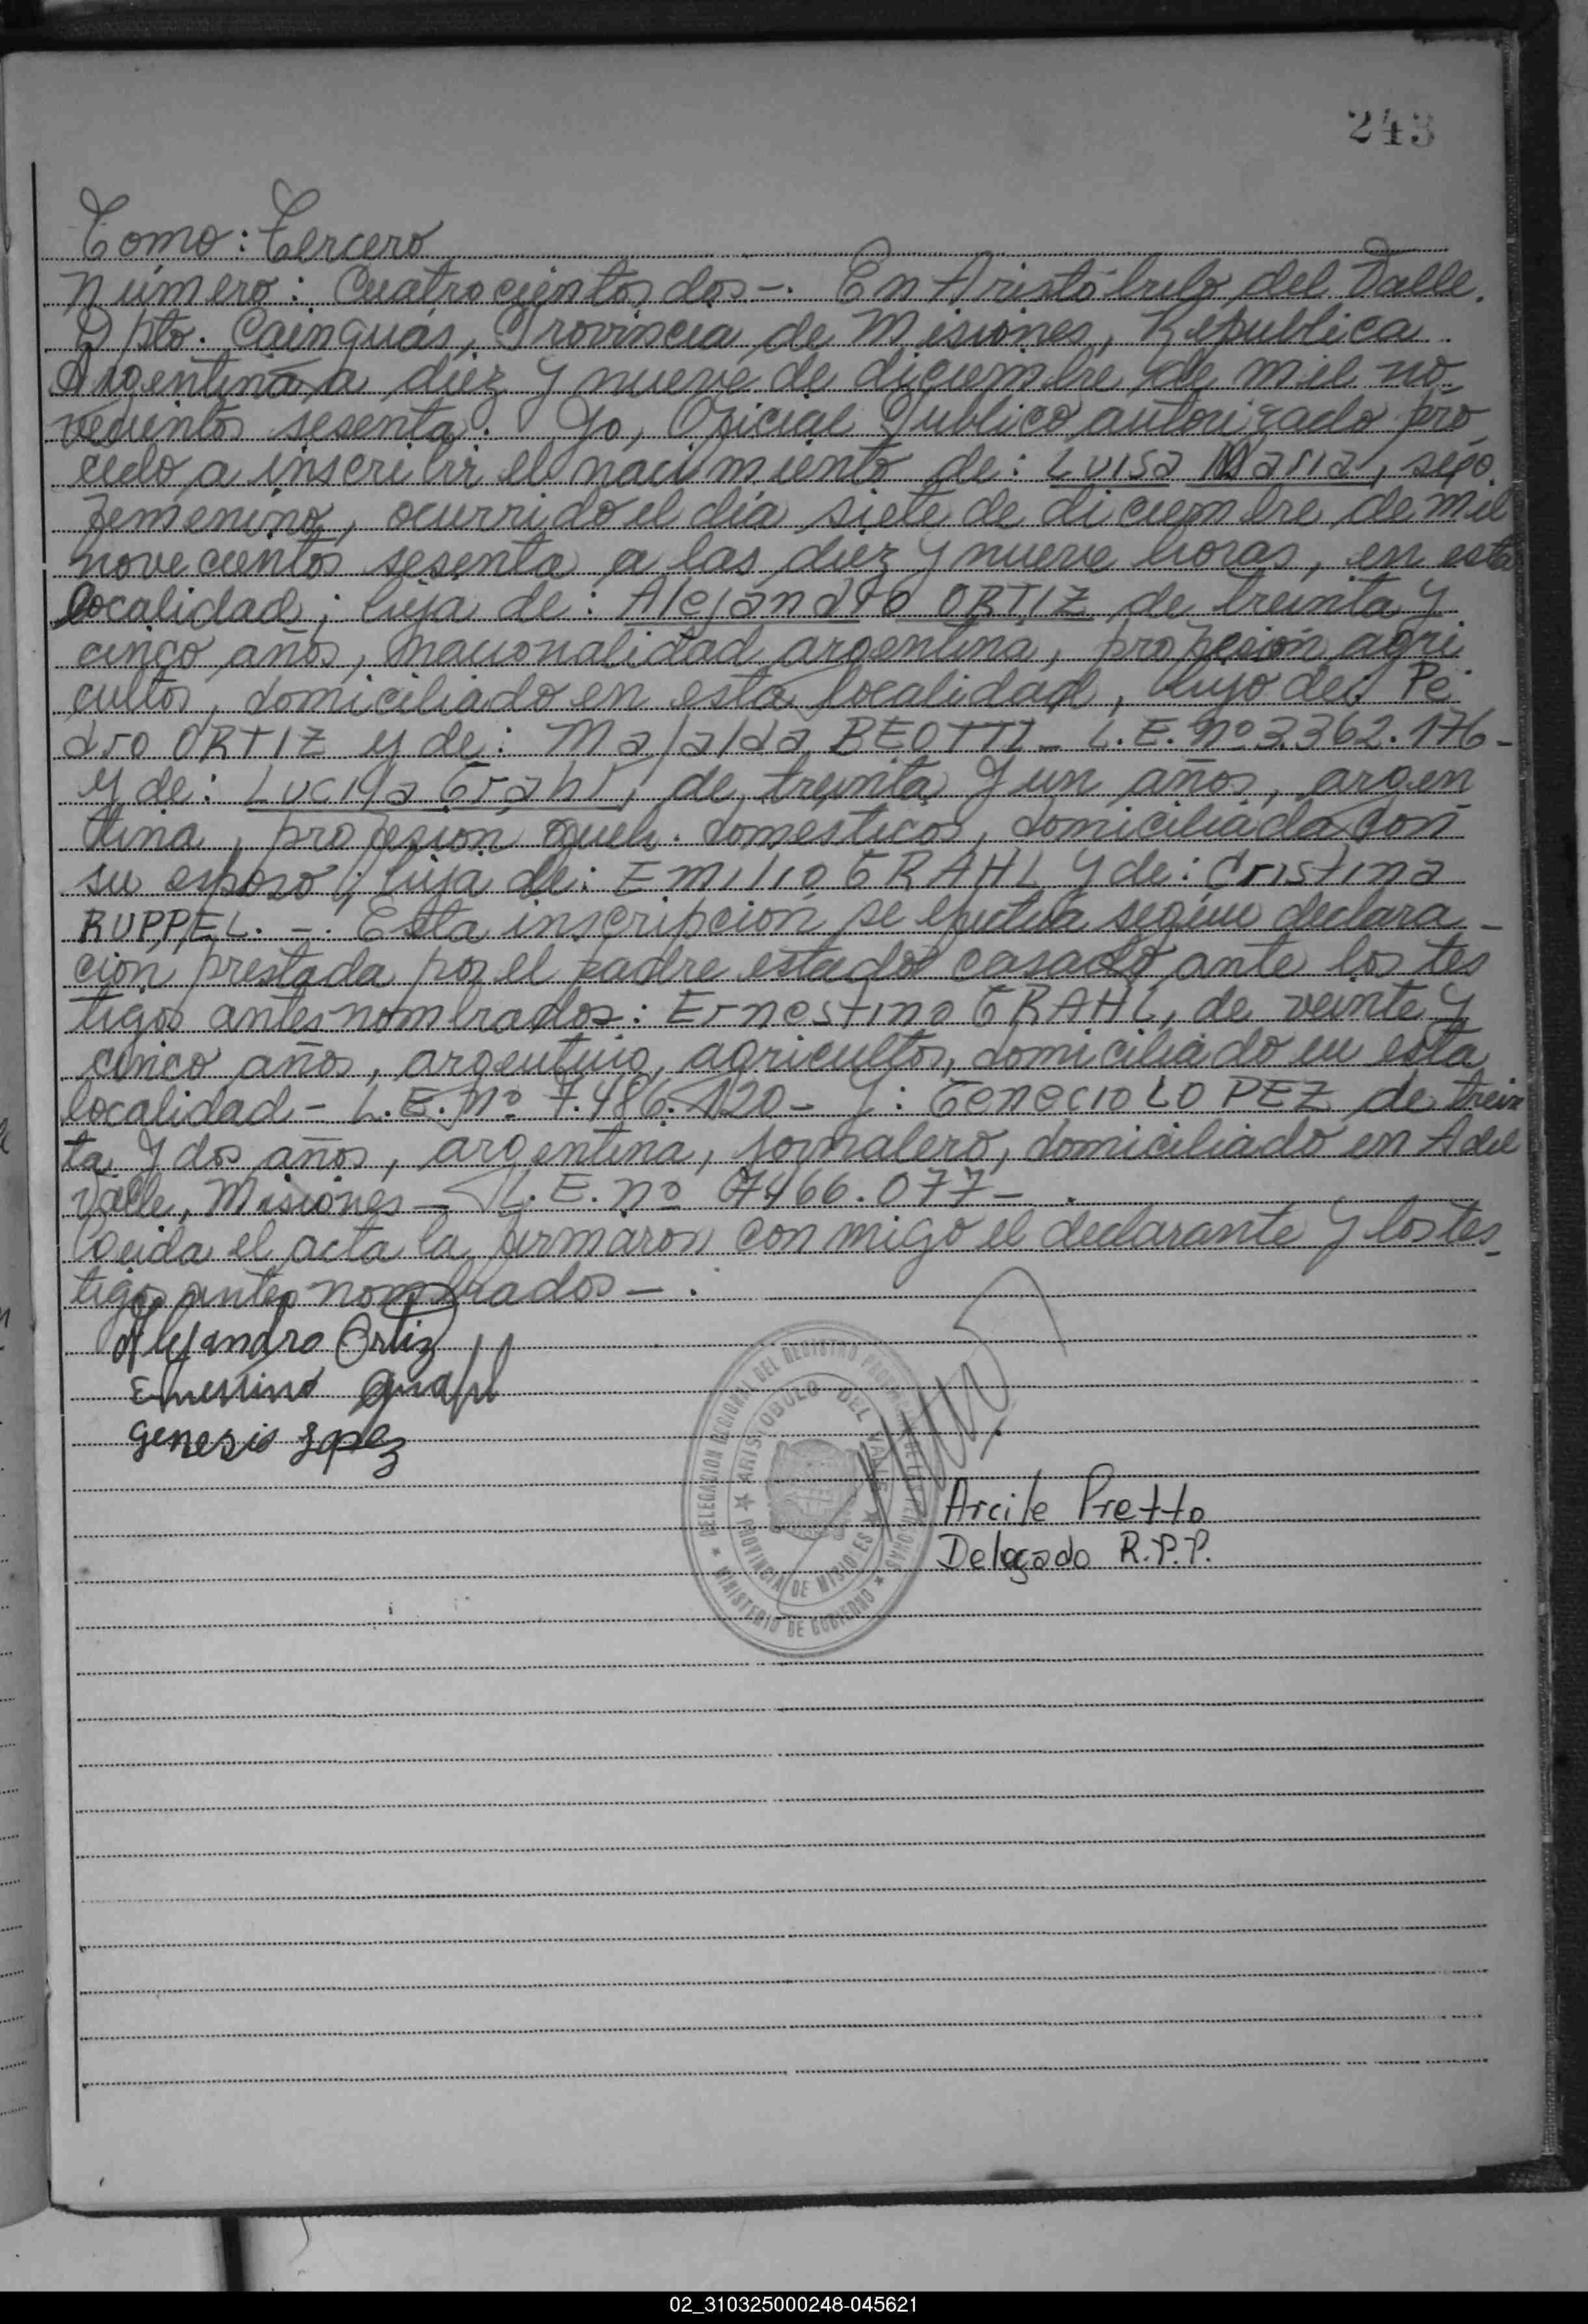 243
Tomo: Tercero
Número: Cuatrocientos dos-. En Aristóbulo del Valle.
Dpto. Cainguás, Provincia de Misiones, República
Argentina a diez y nueve de diciembre de mil no
vecientos sesenta. Yo, Oficial Publico autorizado pro
cedo a inscribir el nacimiento de: Luisa Maria, sexo
femenino, ocurrido el día siete de diciembre de mil
novecientos sesenta a las diez y nueve horas, en esta
localidad; hija de: Alejandro ORTIZ de treinta y
cinco años, nacionalidad argentina, profesión agri
cultor, domiciliado en esta localidad, hijo de: Pe
dro ORTIZ y de: Mafalda BEOTTI - L.E. Nº 3.362.176-
y de: Lucila Grahl, de treinta y un años, argen
tina, profesión queh. domesticos, domiciliada con
su esposo; hija de: Emilio GRAHL y de: Cristina
RUPPEL. -. Esta inscripción se efectúa según declara-
ción prestada por el padre estado casado ante los tes
tigos antes nombrados: Ernestino GRAHL, de veinte y
cinco años, argentino, agricultor, domiciliado en esta
localidad - L.E. Nº 7.486.120 - y: Genecio LOPEZ de trein
ta y dos años, argentina, jornalero, domiciliado en A del
Valle, Misiones - L.E. nº 7466.077- .
Leida el acta la firmaron con migo el declarante y los tes-
tigos antes nombrados - .
Alejandro Ortiz
Ernestino Grahl
Genesio Lopez
DELEGACION REGIONAL DEL REGISTRO PROVINCIAL DE LAS PERSONAS
ARISTOBULO DEL VALLE
PROVINCIA DE MISIONES
MINISTERIO DE GOBIERNO
Arcile Pretto
Delegado R.P.P.
02_310325000248-045621